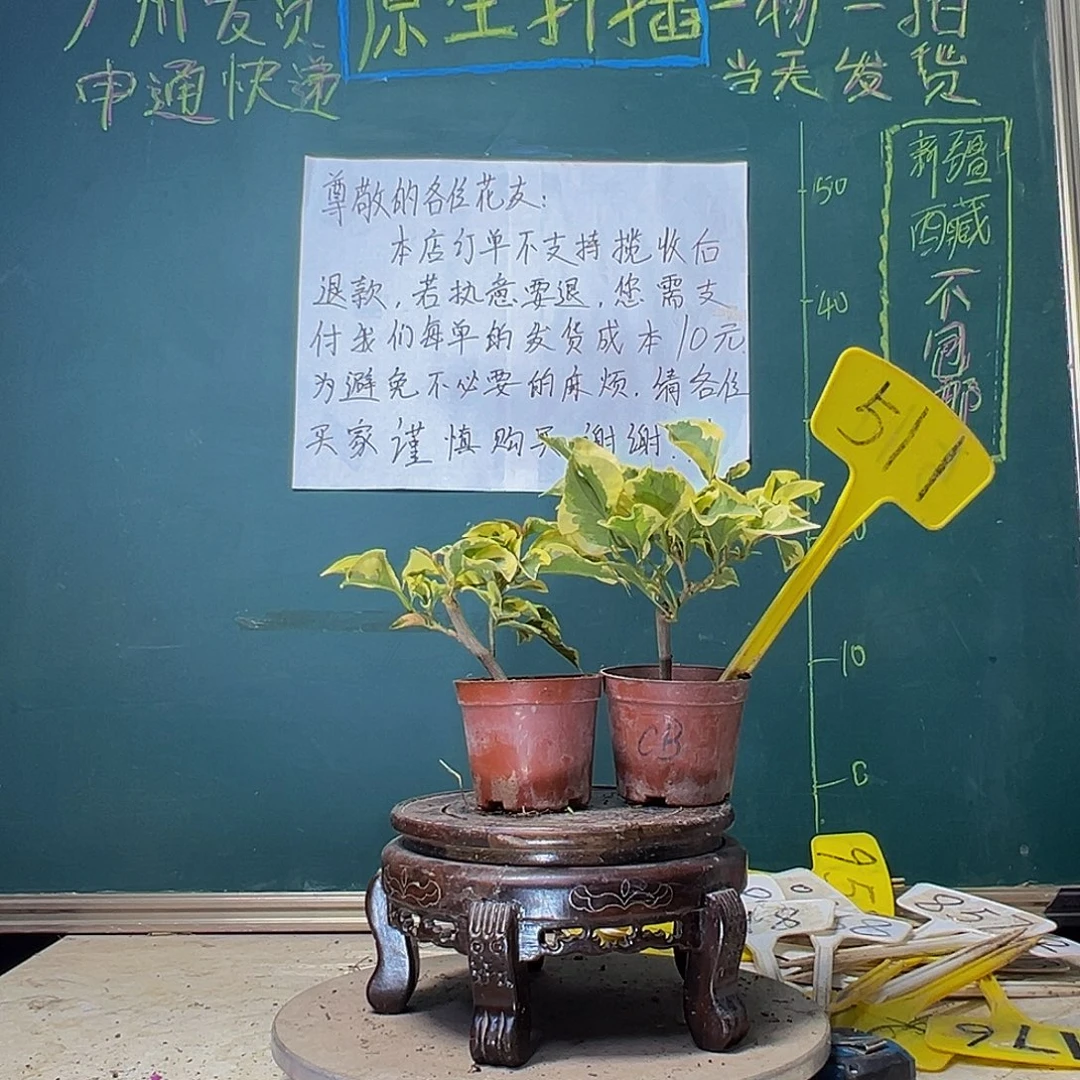 广州发货
原生扦插
一物一拍
申通快递
当天发货
新疆
西藏
不包邮
尊敬的各位花友:
本店订单不支持揽收后
退款,若执意要退,您需支
付我们每单的发货成本10元
为避免不必要的麻烦.请各位
买家谨慎购买 谢谢!
50
40
10
0
511
CB
95